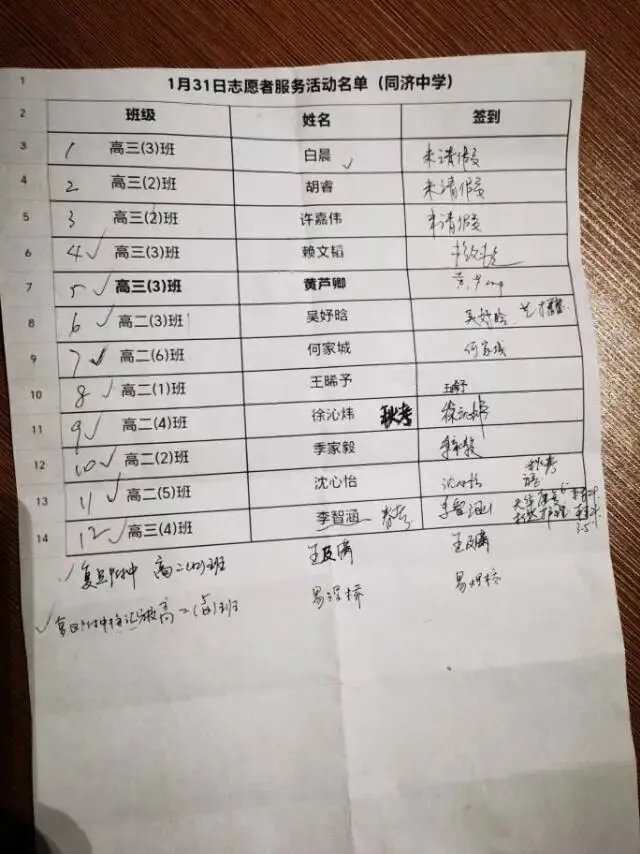 1 1月31日志愿者服务活动名单（同济中学）
2 班级 姓名 签到
3 1 高三(3)班 白晨 ✓ 未请假
4 2 高三(2)班 胡睿 未请假
5 3 高三(2)班 许嘉伟 未请假
6 4 ✓ 高三(3)班 赖文韬
7 5 ✓ 高三(3)班 黄芦卿 黄芦
8 6 ✓ 高二(3)班 吴妤晗 吴妤晗
9 7 ✓ 高二(6)班 何家城 何家城
10 8 ✓ 高二(1)班 王晞予 王晞予
11 9 ✓ 高二(4)班 徐沁炜 秋考 徐沁炜
12 10 ✓ 高二(2)班 季家毅 季家毅
13 11 ✓ 高二(5)班 沈心怡 沈心怡
14 12 ✓ 高三(4)班 李智涵 春考 李智涵
✓ 复旦附中 高二(10)班
✓ 高二(5)班